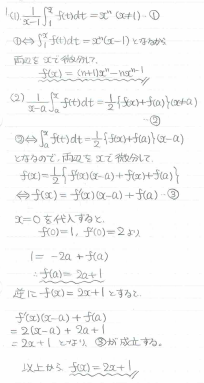 1(1) 1/(x-1) ∫₁ˣ f(t)dt = xⁿ (x≠1)・①
①⇔∫₁ˣ f(t)dt = xⁿ(x-1) となるから
両辺を x で微分して、
f(x) = (n+1)xⁿ - nxⁿ⁻¹
(2) 1/(x-a) ∫ₐˣ f(t)dt = 1/2 {f(x)+f(a)} (x≠a)
―②
②⇔∫ₐˣ f(t)dt = 1/2 {f(x)+f(a)}(x-a)
となるので、両辺を x で微分して、
f(x) = 1/2 {f'(x)(x-a) + f(x) + f(a)}
⇔ f(x) = f'(x)(x-a) + f(a) ―③
x=0 を代入すると、
f(0)=1, f'(0)=2 より
1 = -2a + f(a)
∴ f(a) = 2a+1
逆に f(x) = 2x+1 とすると、
f'(x)(x-a) + f(a)
= 2(x-a) + 2a+1
= 2x+1 となり、③が成立する。
以上から f(x) = 2x+1